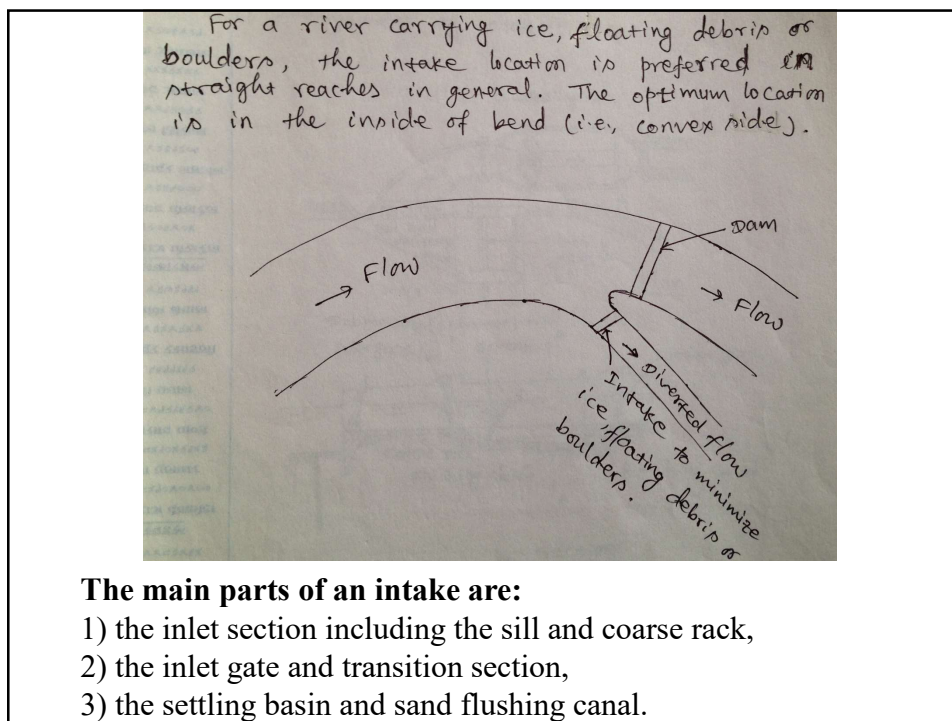 For a river carrying ice, floating debris or
boulders, the intake location is preferred in
straight reaches in general. The optimum location
is in the inside of bend (i.e., convex side).
Dam
Flow
Flow
Diverted flow
Intake to minimize
ice, floating debris or
boulders.
The main parts of an intake are:
1) the inlet section including the sill and coarse rack,
2) the inlet gate and transition section,
3) the settling basin and sand flushing canal.